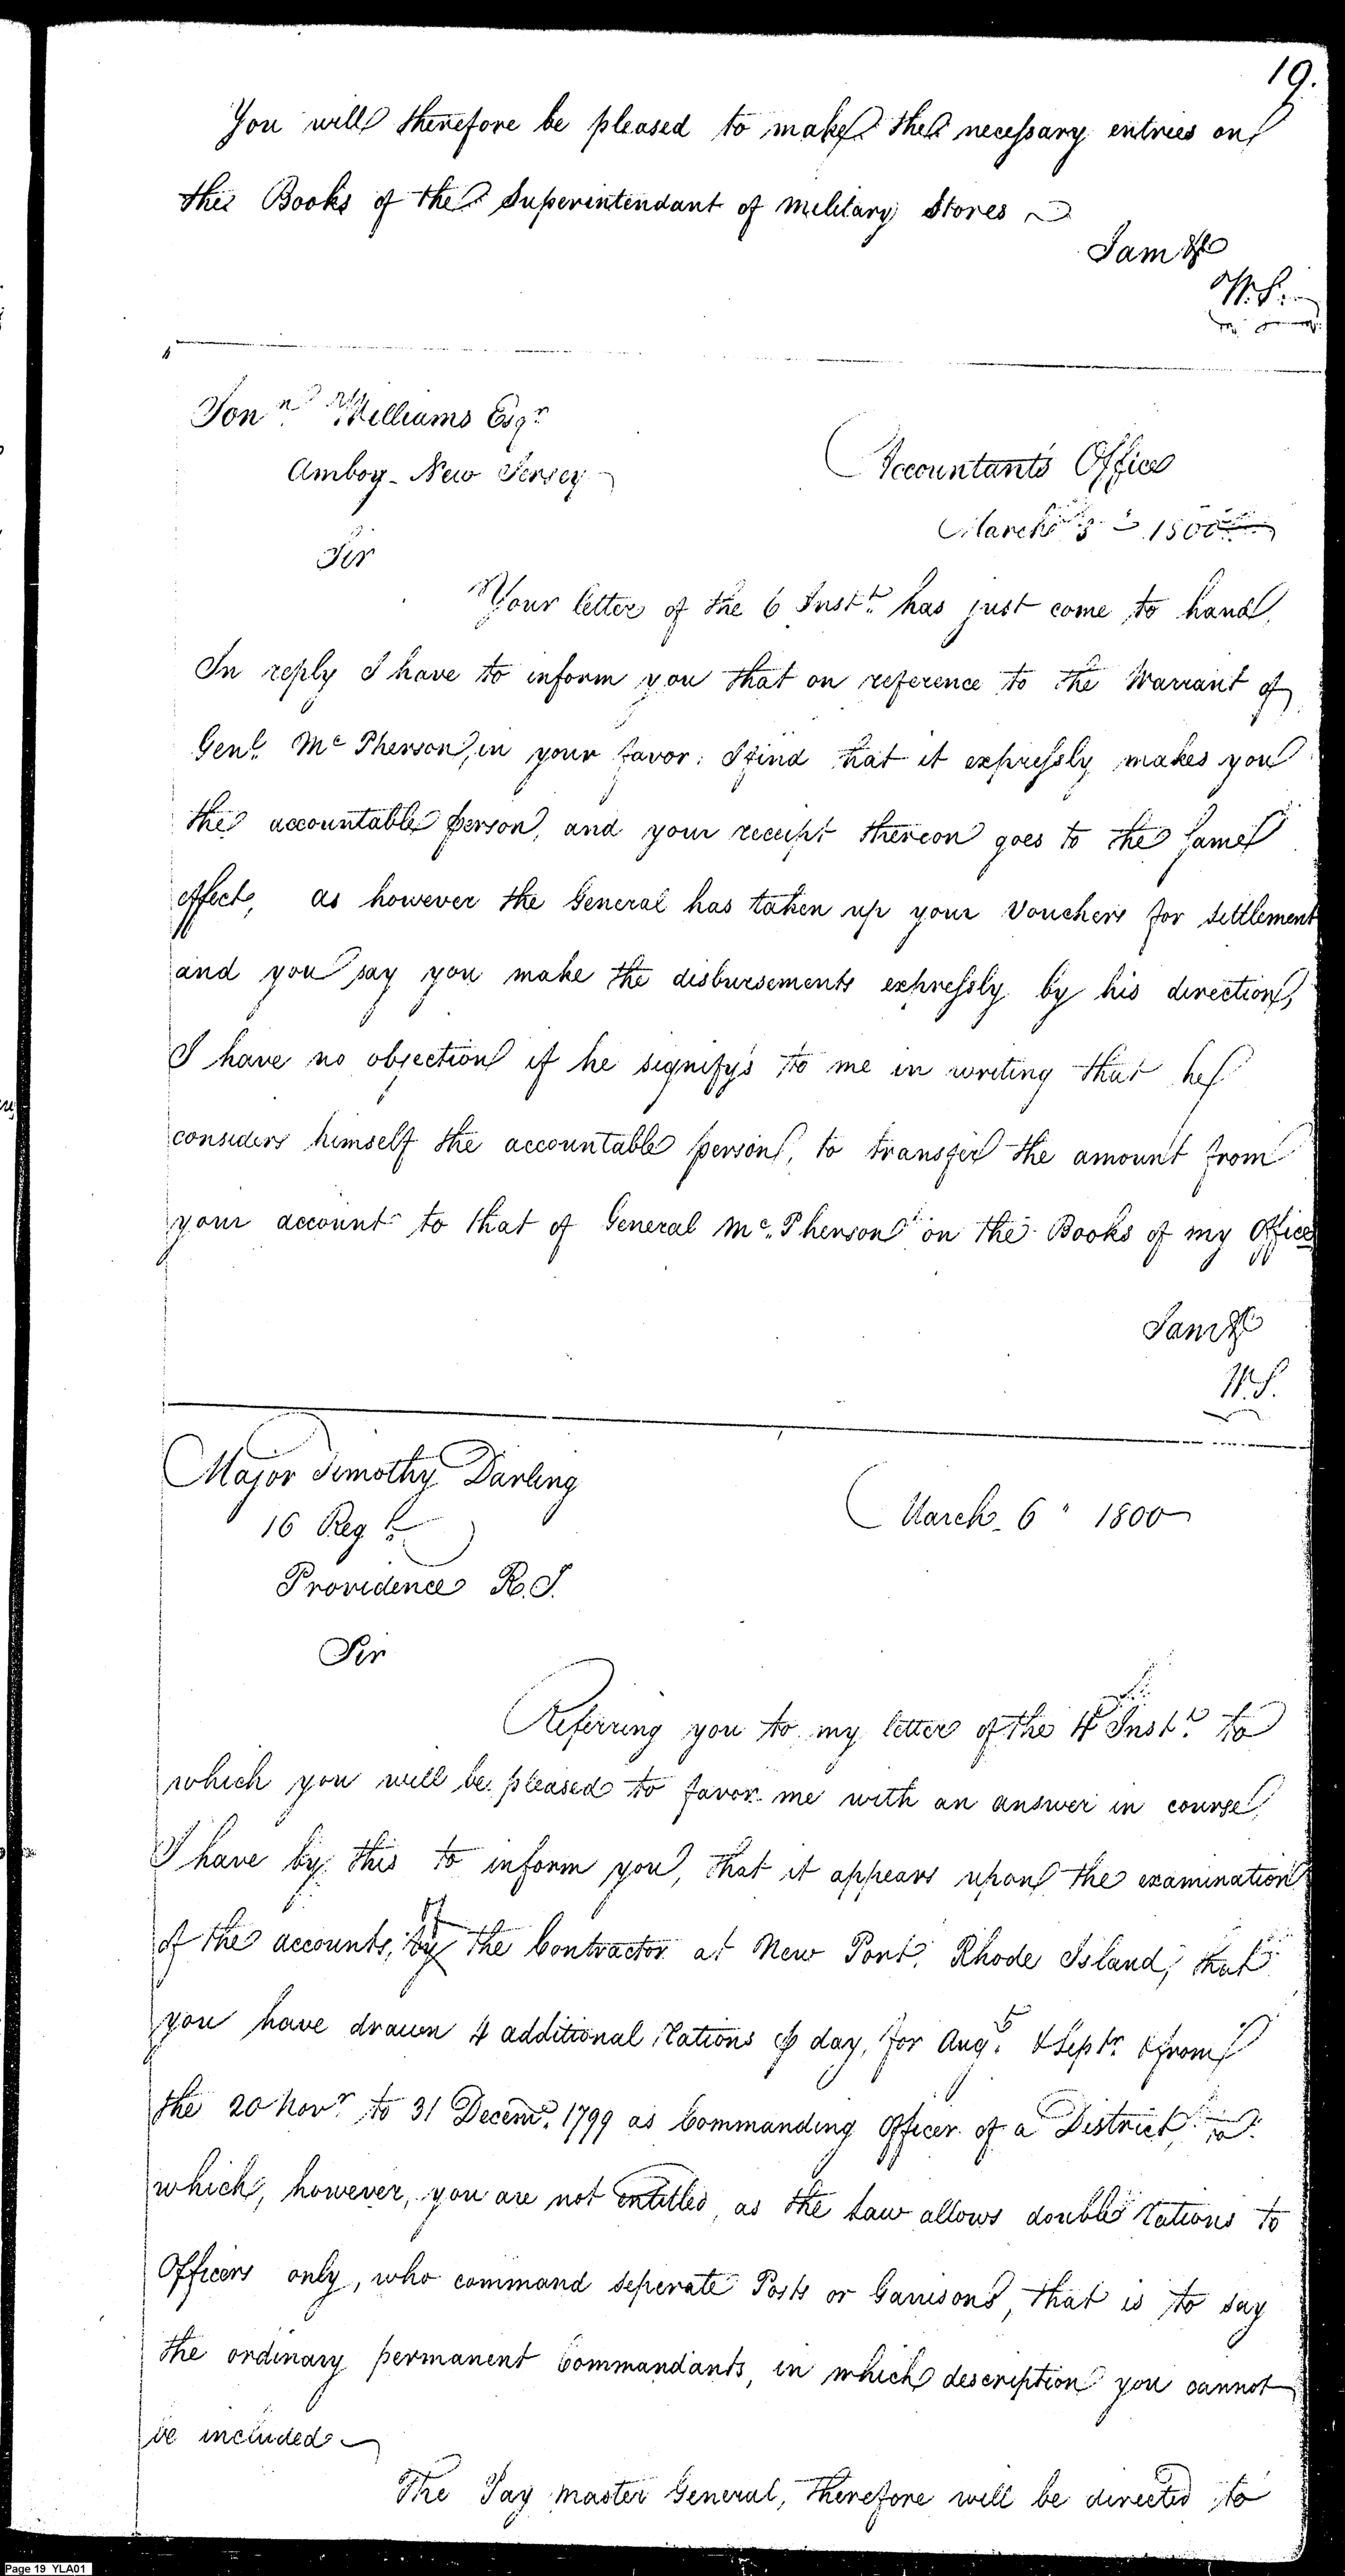 19.
You will therefore be pleased to make the necessary entries on
the Books of the Superintendant of military Stores
I am &c
W.S.
Jonn. Williams Esqr
Amboy - New Jersey
Accountants Office
March 1800
Sir
Your letter of the 6 Instt. has just come to hand,
In reply I have to inform you that on reference to the Warrant of
Genl. Mc Pherson, in your favor; I find that it expressly makes you
the accountable person, and your receipt thereon goes to the same
effect, as however the General has taken up your Vouchers for settlement
and you say you make the disbursements expressly by his direction,
I have no objection if he signify's to me in writing that he
considers himself the accountable person, to transfer the amount from
your account to that of General Mc. Pherson on the Books of my Office
I am &c
W.S.
Major Timothy Darling
16 Regt.
March 6 " 1800
Providence R.I.
Sir
Referring you to my letter of the 4 Instt. to
which you will be pleased to favor me with an answer in course,
I have by this to inform you, that it appears upon the examination
of the accounts, by of the Contractor at New Port, Rhode Island, that
you have drawn 4 additional Rations ⅌ day, for Augt. & Septr. & from
the 20 Novr. to 31 Decemr. 1799 as Commanding Officer of a District, to
which, however, you are not entitled, as the Law allows double Rations to
Officers only, who command seperate Posts or Garrisons, that is to say
the ordinary permanent Commandants, in which description you cannot
be included
The Pay master General, therefore will be directed to
Page 19 YLA01